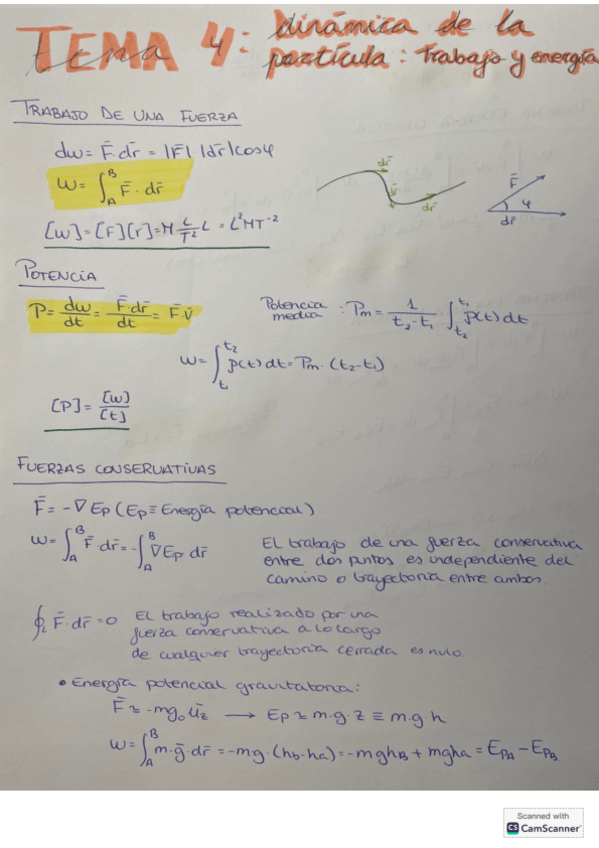 TEMA 4: dinámica de la
tema
partícula: Trabajo y energía
TRABAJO DE UNA FUERZA
dw = F̄·dr̄ = |F̄| |dr̄| cosφ
W = ∫_A^B F̄·dr̄
dr̄
dr̄
dr̄
F̄
φ
dr̄
[W] = [F][r] = M L/T² L = L²MT⁻²
POTENCIA
P = dw/dt = F̄·dr̄/dt = F̄·v̄
Potencia media: Pm = 1/(t₂-t₁) ∫_{t₂}^{t₁} P(t)dt
W = ∫_{t₁}^{t₂} P(t)dt = Pm·(t₂-t₁)
[P] = [W]/[t]
FUERZAS CONSERVATIVAS
F̄ = -∇Ep (Ep ≡ Energía potencial)
W = ∫_A^B F̄ dr̄ = -∫_A^B ∇̄Ep dr̄
El trabajo de una fuerza conservativa
entre dos puntos es independiente del
camino o trayectoria entre ambos.
∮_L F̄·dr̄ = 0
El trabajo realizado por una
fuerza conservativa a lo largo
de cualquier trayectoria cerrada es nulo.
• Energía potencial gravitatoria:
F̄ ≃ -mg₀ūz → Ep ≃ m·g·z ≡ m·g·h
W = ∫_A^B m·ḡ·dr̄ = -mg·(hb-ha) = -mghB + mgha = EpA - EpB
Scanned with
CS CamScanner